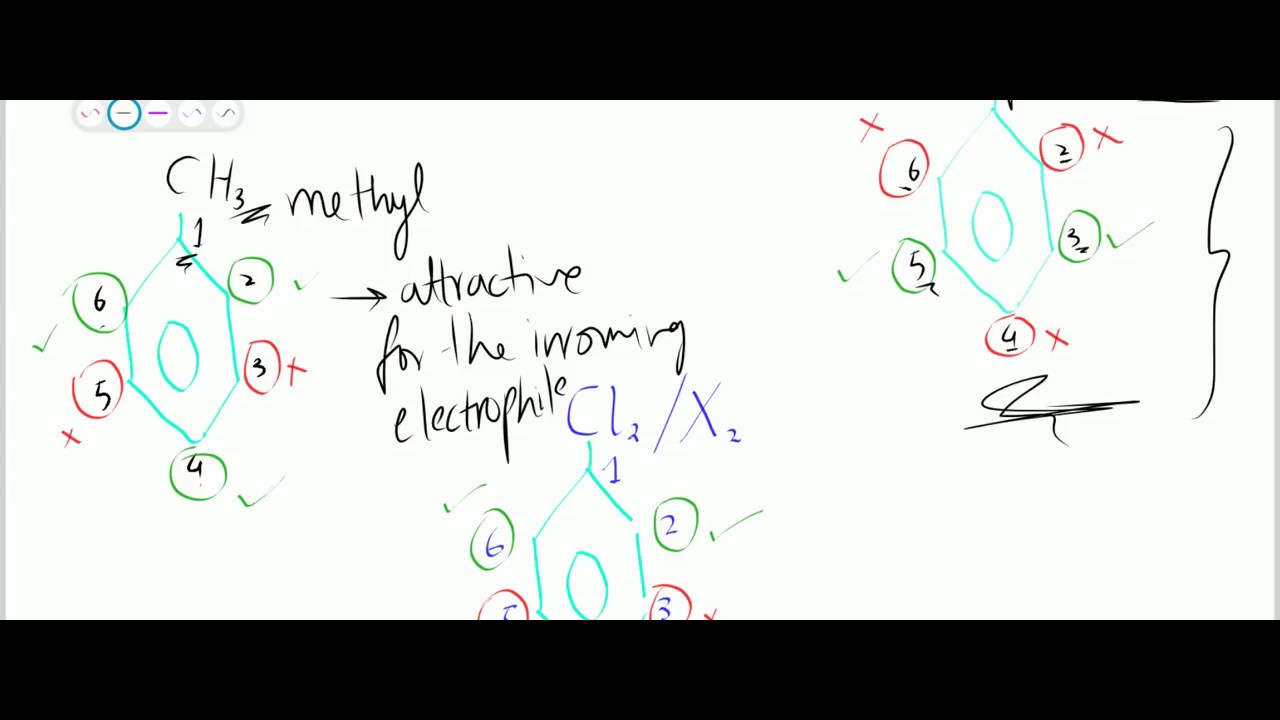 CH3 methyl
1
2
3
4
5
6
x
x
→ attractive
for the incoming
electrophile
Cl2/X2
1
2
3
5
6
x
2
3
4
5
6
x
x
x